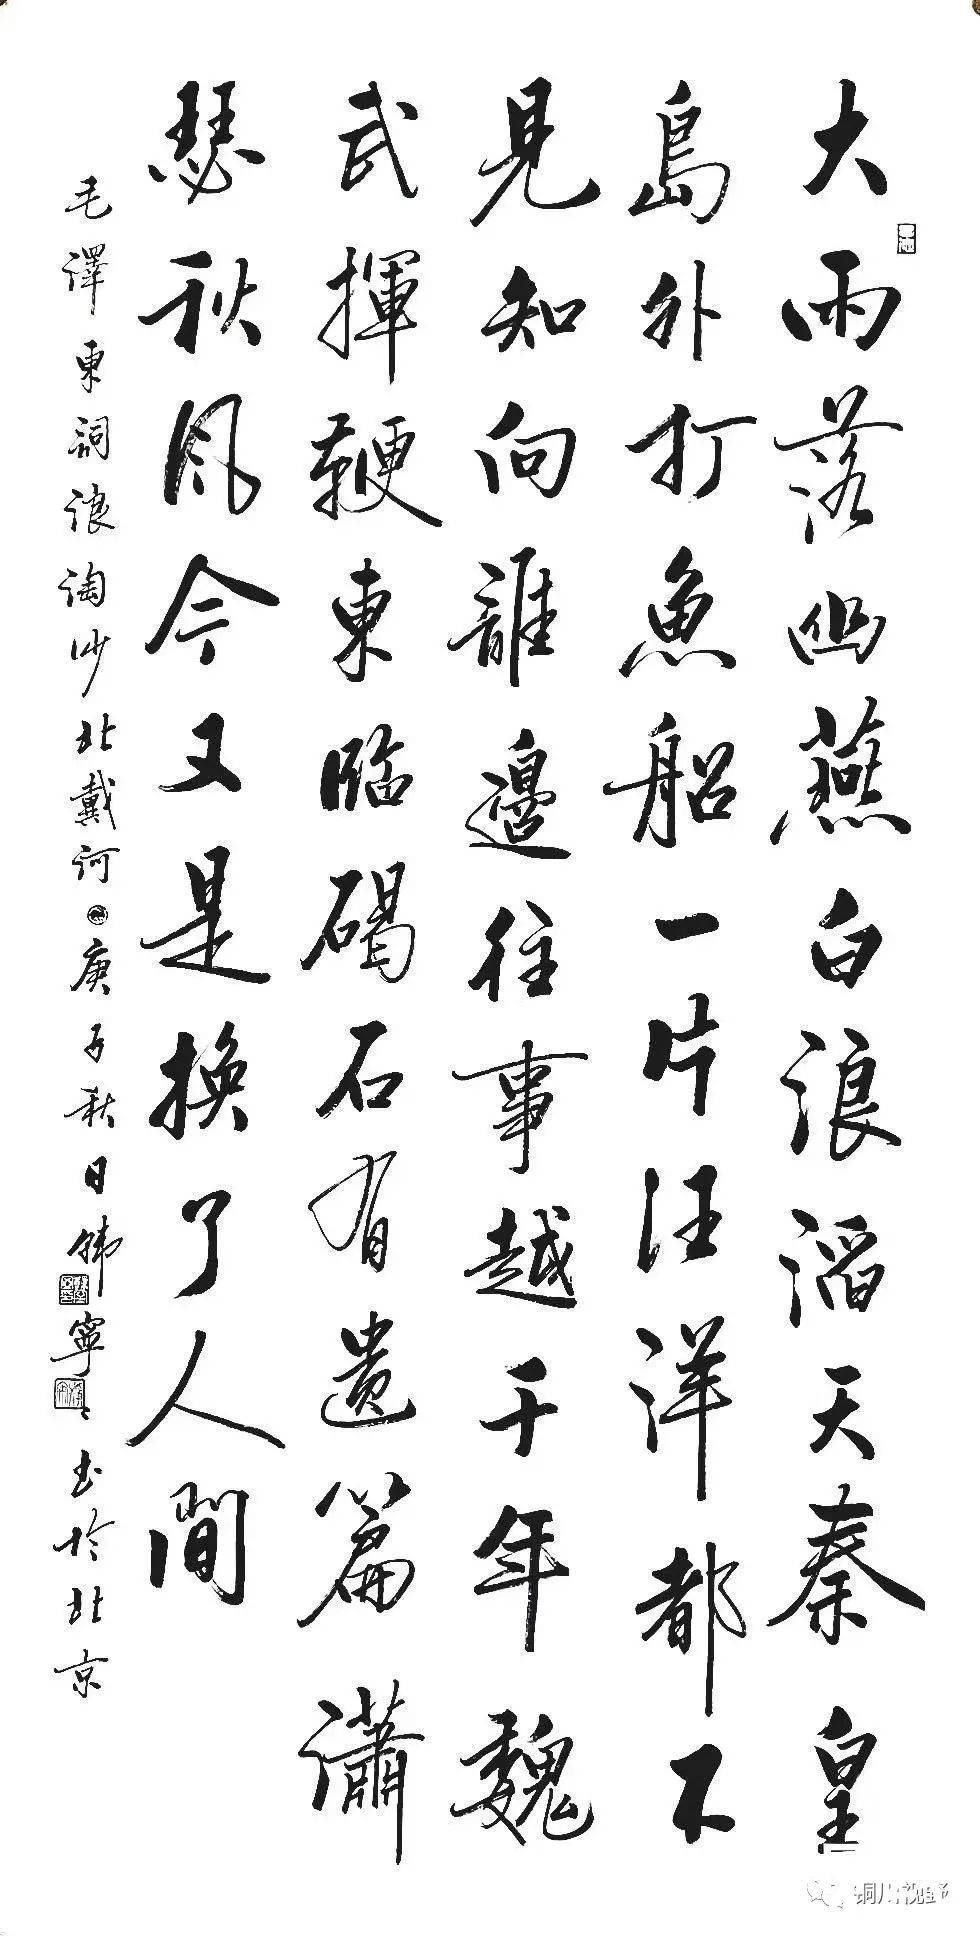 大雨落幽燕白浪滔天秦皇
島外打魚船一片汪洋都不
見知向誰邊往事越千年魏
武揮鞭東臨碣石有遺篇瀟
瑟秋風今又是換了人間
毛澤東詞浪淘沙北戴河庚子秋日韩寧書於北京